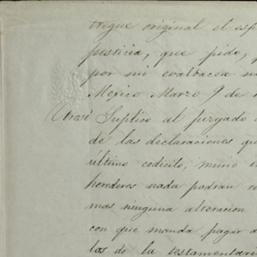 tregue original el esp
justicia, que pido, p
por mi coalbacea
Mexico Marzo 9 de
Otrosi Suplico al juzgado
de las declaraciones qu
último codicilo, mino
honderes nada podran
mas ninguna alteracion
con que manda pagar
las de la testamentaria